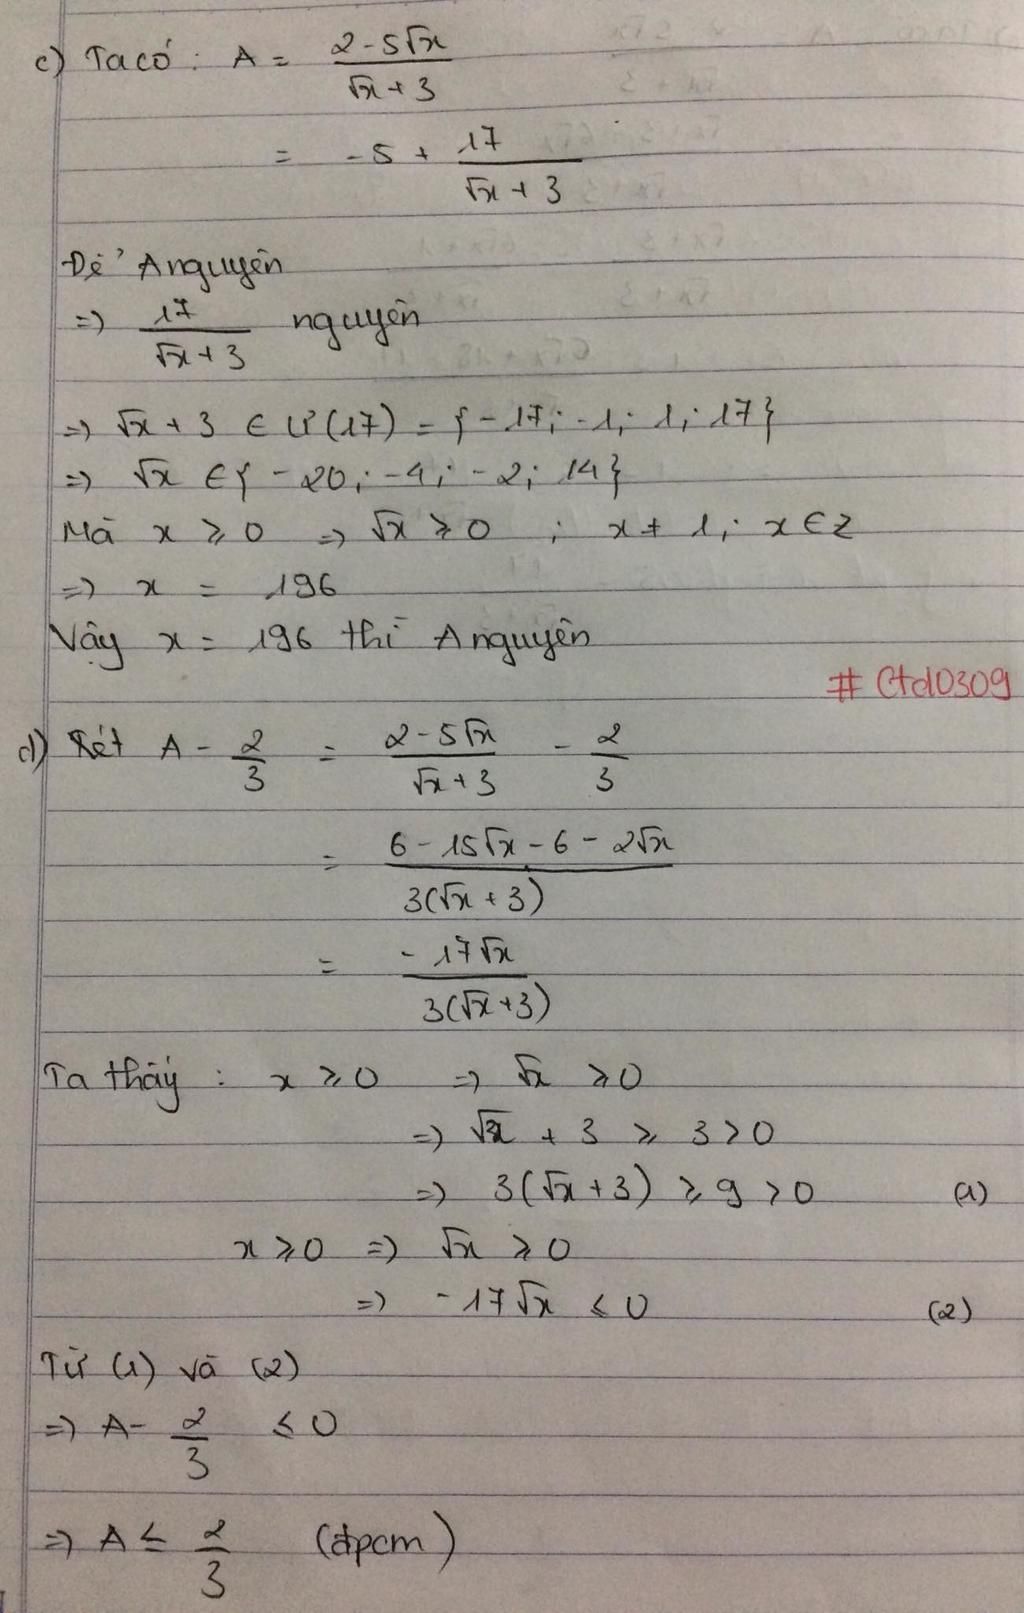 c) Ta có : A = (2 - 5√x)/(√x + 3)
= -5 + 17/(√x + 3)
Để A nguyên
=> 17/(√x + 3) nguyên
=> √x + 3 ∈ Ư(17) = {-17; -1; 1; 17}
=> √x ∈ {-20; -4; -2; 14}
Mà x ⩾ 0 => √x ⩾ 0 ; x ≠ 1; x ∈ Z
=> x = 196
Vậy x = 196 thì A nguyên
# Ctd0309
d) Xét A - 2/3 = (2 - 5√x)/(√x + 3) - 2/3
= (6 - 15√x - 6 - 2√x)/(3(√x + 3))
= (-17√x)/(3(√x + 3))
Ta thấy : x ⩾ 0 => √x ⩾ 0
=> √x + 3 ⩾ 3 > 0
=> 3(√x + 3) ⩾ 9 > 0 (1)
x ⩾ 0 => √x ⩾ 0
=> -17√x ⩽ 0 (2)
Từ (1) và (2)
=> A - 2/3 ⩽ 0
=> A ⩽ 2/3 (đpcm)